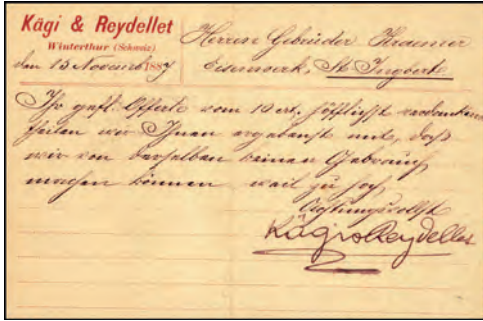 Kägi & Reydellet
Winterthur (Schweiz)
den 15 Novemb 1887
Herren Gebrüder Kraemer
Eisenwerk, St. Ingbert
Ihr gefl. Offerte vom 10 crt. höfflichst verdankend
theilen wir Ihnen ergebenst mit, daß
wir von derselben keinen Gebrauch
machen können weil zu hoch
Achtungsvollst
Kägi & Reydellet